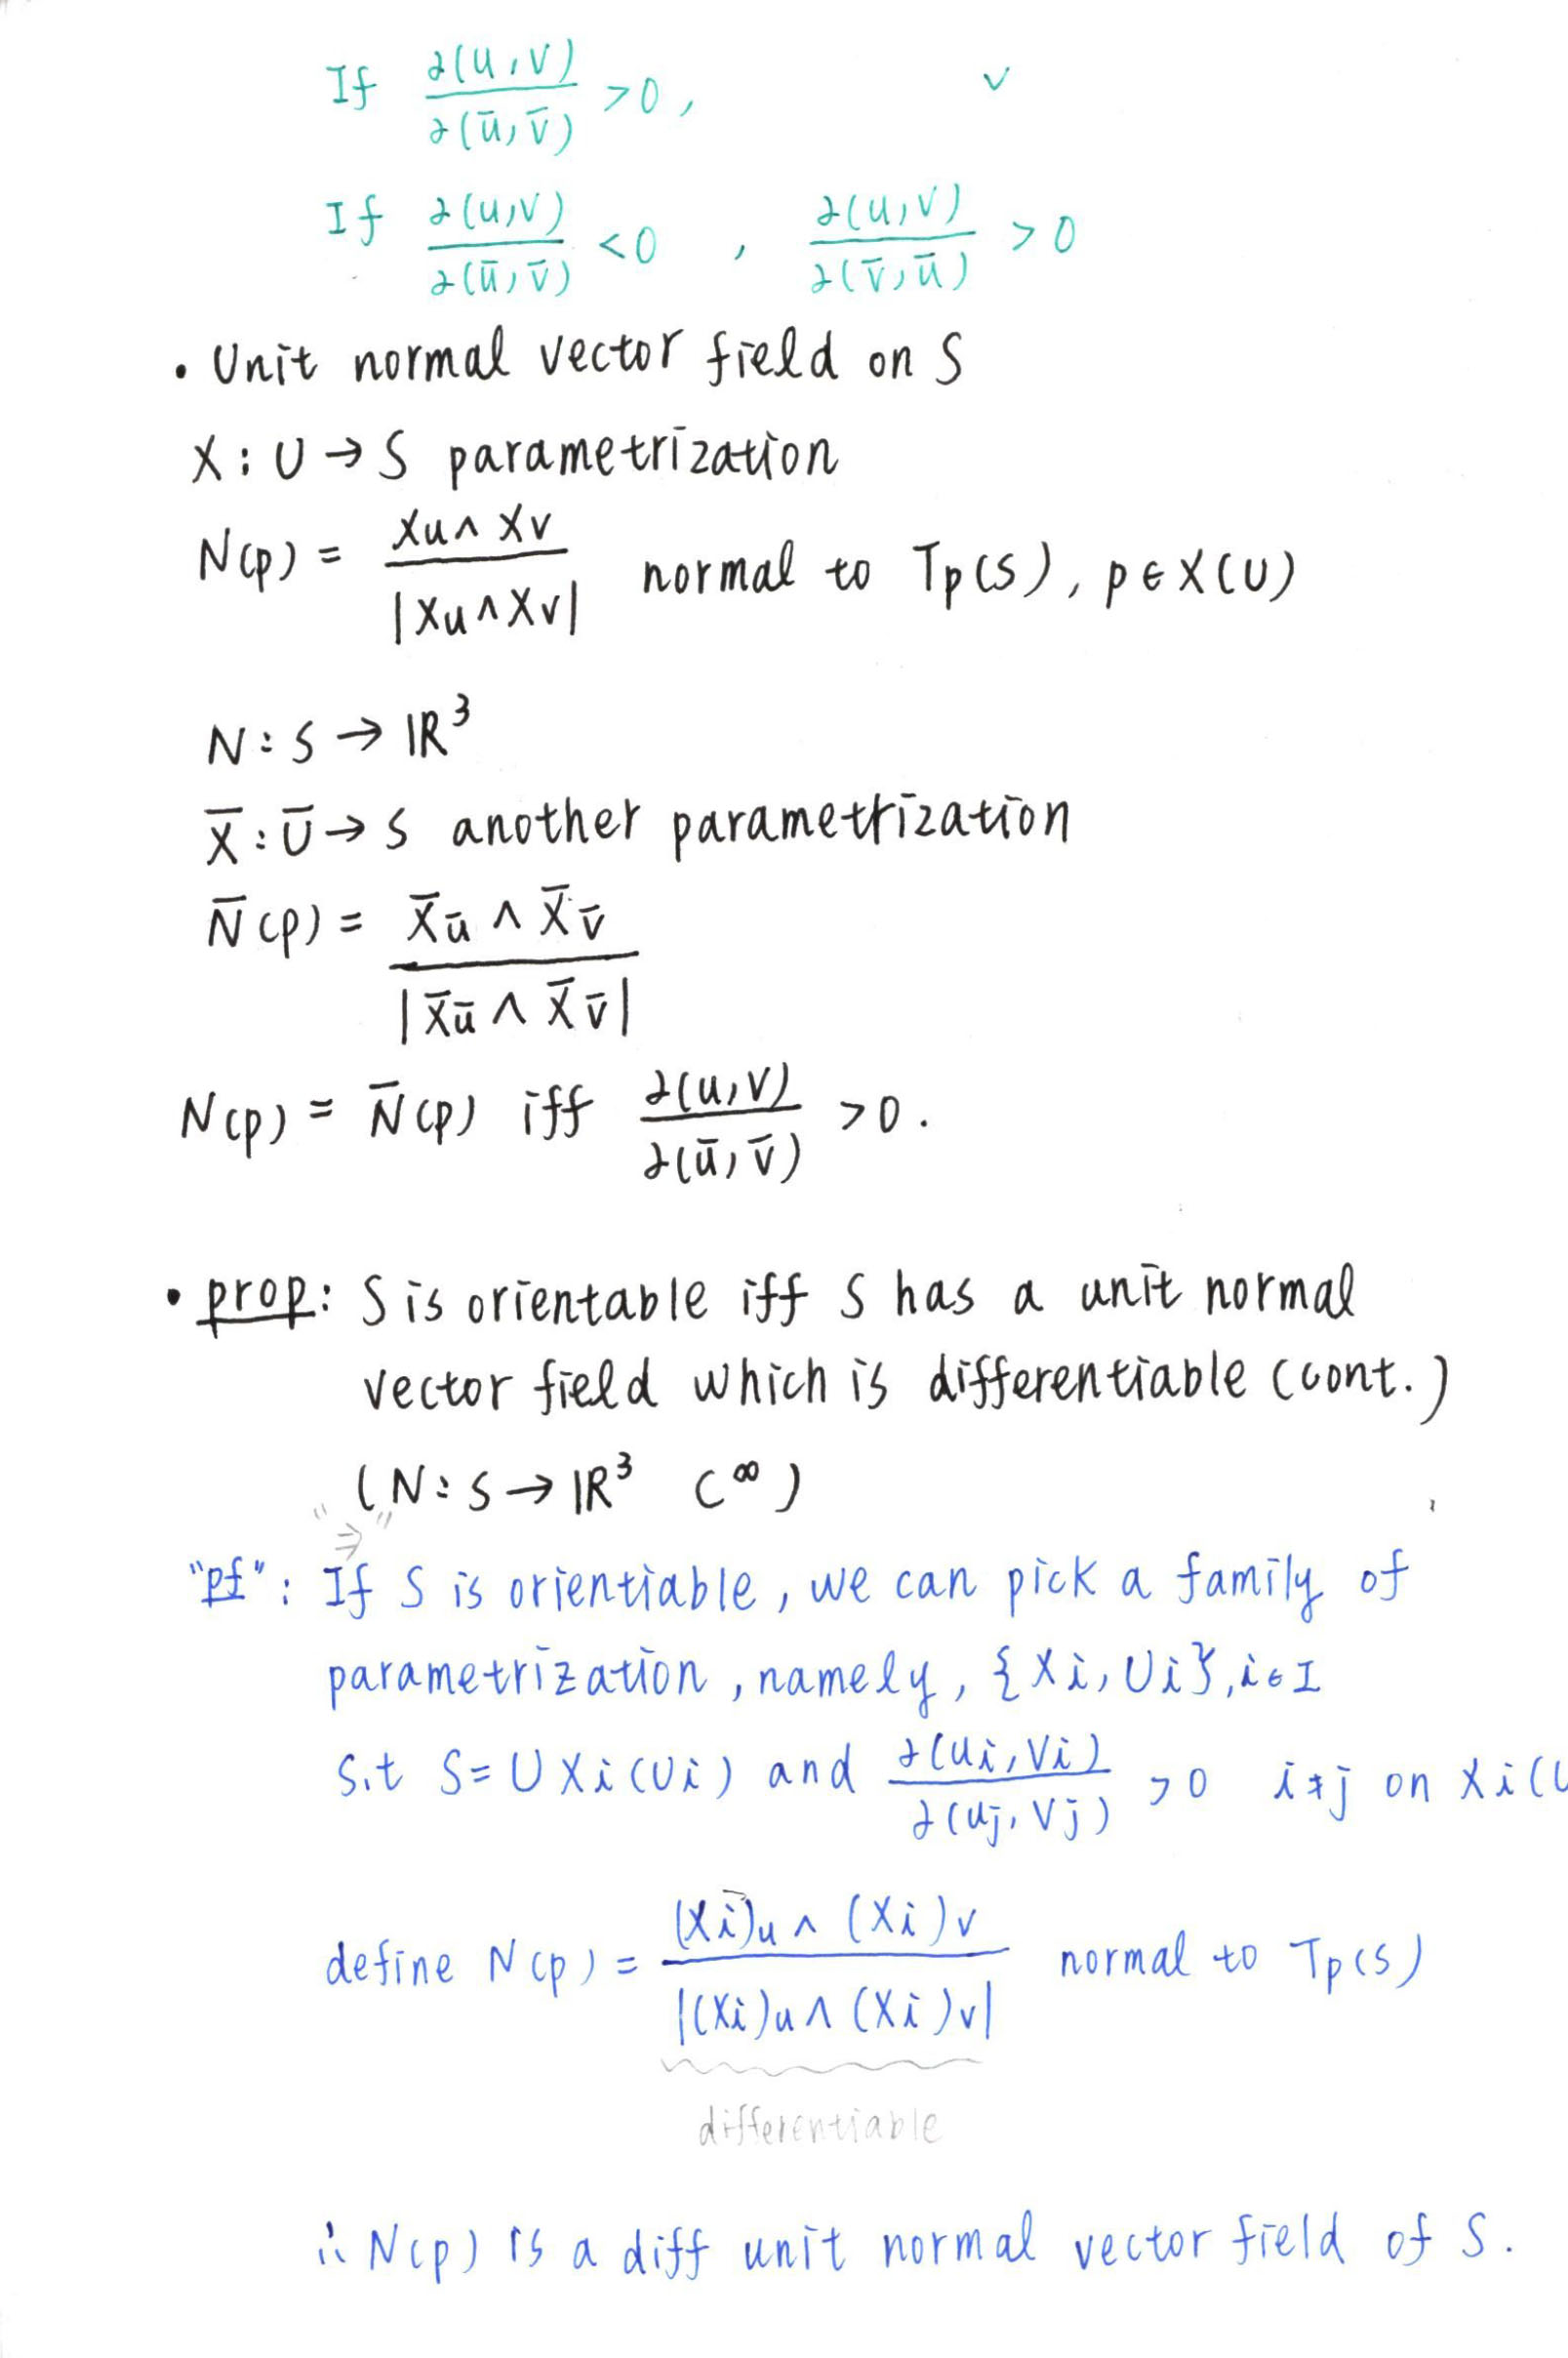 If ∂(u,v)/∂(ū,v̄) >0, ✓
If ∂(u,v)/∂(ū,v̄) <0 , ∂(u,v)/∂(v̄,ū) >0
• Unit normal vector field on S
X: U → S parametrization
N(p) = Xu∧Xv/|Xu∧Xv| normal to Tp(S), p∈X(U)
N: S → ℝ³
X̄: Ū → S another parametrization
N̄(p) = X̄ū ∧ X̄v̄/|X̄ū ∧ X̄v̄|
N(p) = N̄(p) iff ∂(u,v)/∂(ū,v̄) >0.
• prop: S is orientable iff S has a unit normal
vector field which is differentiable (cont.)
(N: S → ℝ³ C^∞)
"⇒"
"pf": If S is orientiable, we can pick a family of
parametrization, namely, {Xi, Ui}, i∈I
s.t S=∪Xi(Ui) and ∂(ui,vi)/∂(uj,vj) >0 i≠j on Xi(
define N(p) = (Xi)u ∧ (Xi)v/|(Xi)u ∧ (Xi)v| normal to Tp(S)
differentiable
∴ N(p) is a diff unit normal vector field of S.